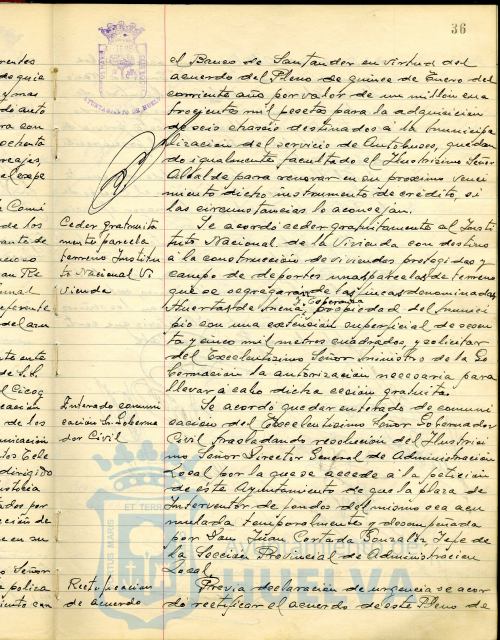 36
el Banco de Santander en virtud del
acuerdo del Pleno de quince de Enero del
corriente año por valor de un millón cua
trocientas mil pesetas para la adquisición
de seis chasis destinados a la municipa
lización del servicio de Autobuses, quedan
do igualmente facultado el Ilustrísimo Señor
Alcalde para renovar en su próximo venci
miento dicho instrumento de crédito, si
las circunstancias lo aconsejan.
Ceder gratuita
mente parcela
terreno Institu
to Nacional Vi
vienda
Se acordó ceder gratuitamente al Insti
tuto Nacional de la Vivienda con destino
a la construcción de viviendas protegidas y
campo de deportes unas parcelas de terreno
que se segregarán de las fincas denominadas
Huertas de Mena y Esperanza, propiedad del munici
pio con una extensión superficial de sesen
ta y cinco mil metros cuadrados, y solicitar
del Excelentísimo Señor Ministro de la Go
bernación la autorización necesaria para
llevar a cabo dicha cesión gratuita.
Enterado comuni
cación Sr. Goberna
dor Civil
Se acordó quedar enterado de comuni
cación del Excelentísimo Señor Gobernador
Civil trasladando resolución del Ilustrísi
mo Señor Director General de Administración
Local por la que se accede a la petición
de este Ayuntamiento de que la plaza de
Interventor de fondos del mismo sea acu
mulada temporalmente y desempeñada
por Don Juan Cortada González Jefe de
la Sección Provincial de Administración
Local.
Rectificación
de acuerdo
Previa declaración de urgencia se acor
dó rectificar el acuerdo de este Pleno de
HUELVA